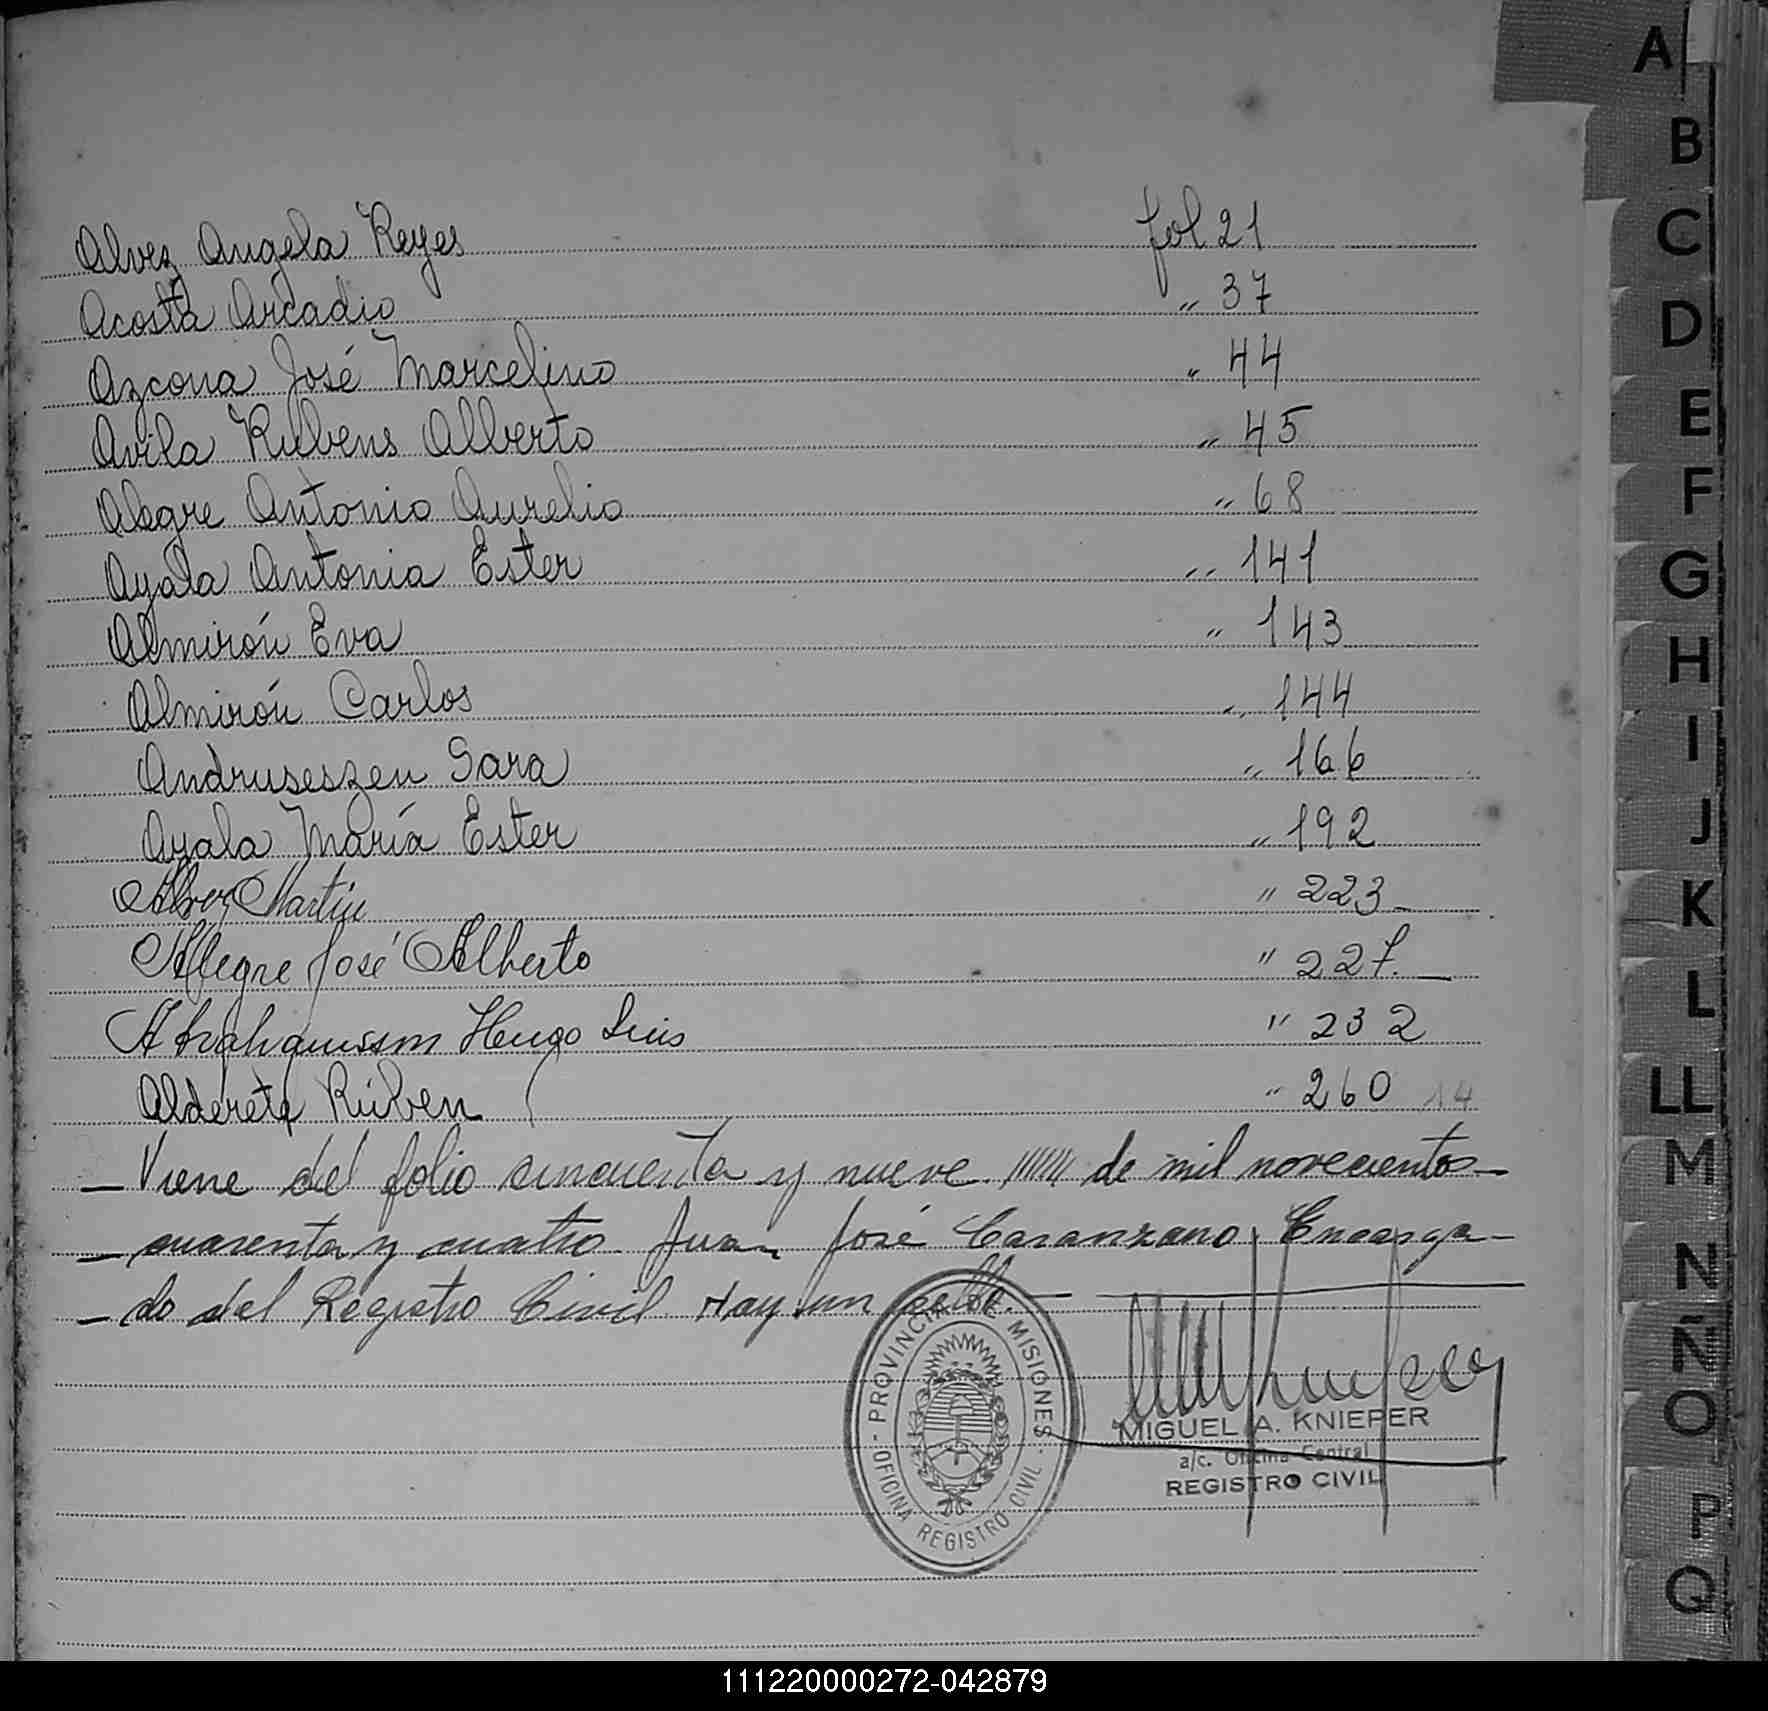 Alvez Angela Reyes fol 21
Acosta Arcadio " 37
Azcona José Marcelino " 44
Avila Rubens Alberto " 45
Alegre Antonio Aurelio " 68
Ayala Antonia Ester " 141
Almirón Eva " 143
Almirón Carlos " 144
Andruseszen Sara " 166
Ayala María Ester " 192
Alvez Martín " 223
Alegre José Alberto " 227.
Hugo Luis " 232
Alderete Rúben " 260 14
Viene del folio cincuenta y nueve ////// de mil novecientos
cuarenta y cuatro. Juan José Caranzano Encarga-
do del Registro Civil. Hay un sello.
PROVINCIA DE MISIONES
OFICINA REGISTRO CIVIL
MIGUEL A. KNIEPER
a/c. Oficina Central
REGISTRO CIVIL
A
B
C
D
E
F
G
H
I
J
K
L
LL
M
N
Ñ
O
P
Q
111220000272-042879